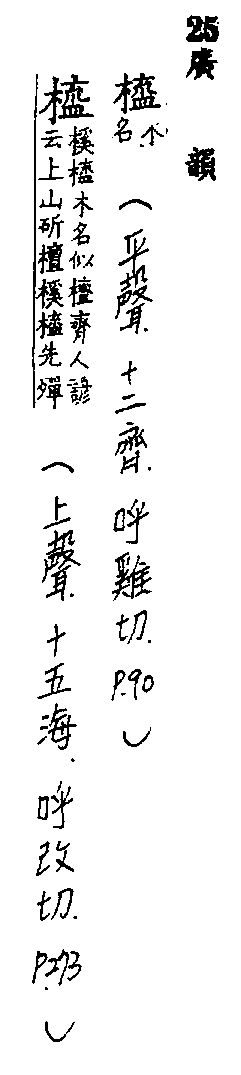 25廣韻
橀木名（平聲.十二齊.呼雞切.P.90）
橀榽橀木名似檀齊人諺云上山斫檀榽橀先殫（上聲.十五海.呼改切.P.273）